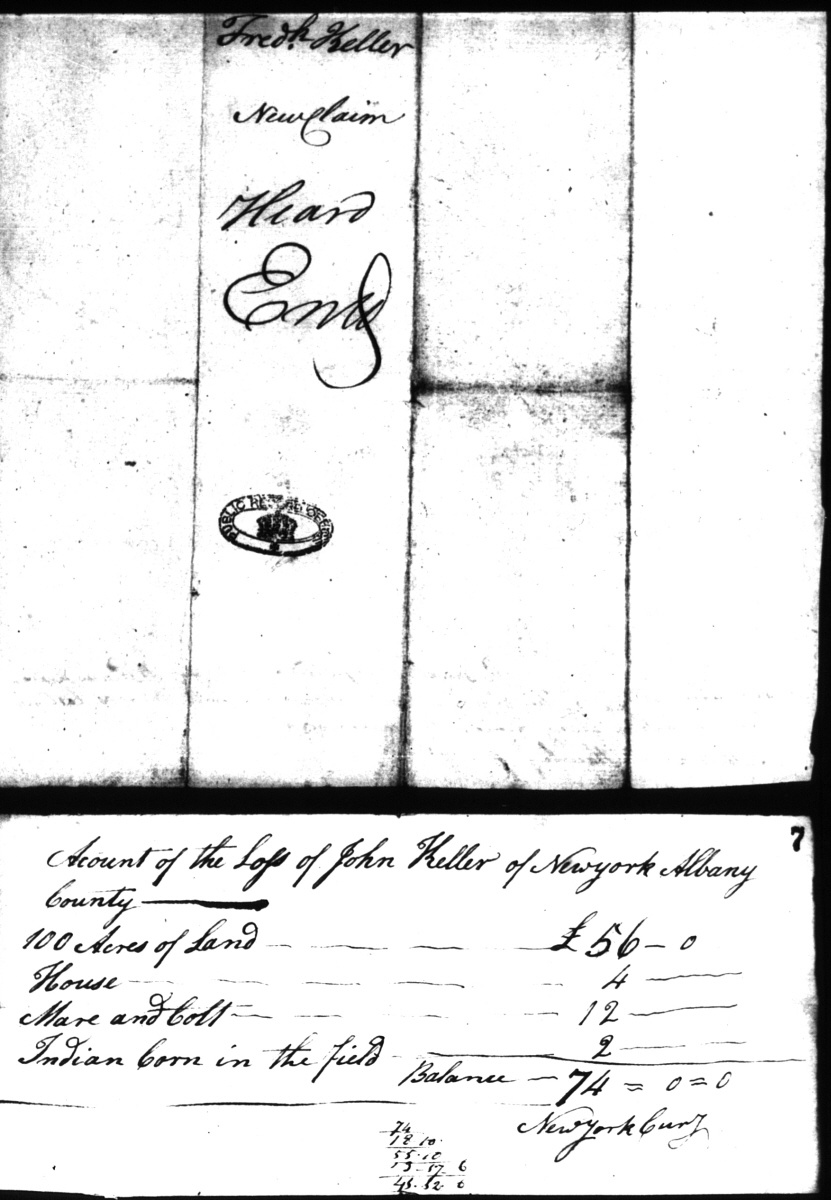 Fredk. Keller
New Claim
Heard
Entd
PUBLIC RECORD OFFICE
7
Acount of the Loss of John Keller of Newyork Albany
County
100 Acres of Land £56 - 0
House 4
Mare and Colt 12
Indian Corn in the field 2
Balance - 74 = 0 = 0
New York Cury
74
18 10
55. 10